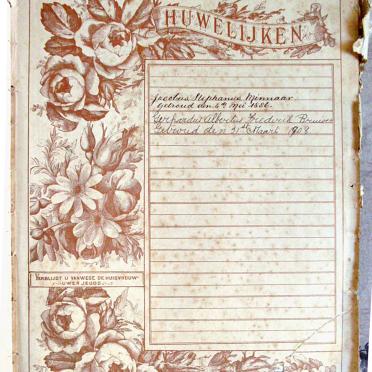 HUWELIJKEN
Jacobus Stephanus Minnaar
Getroud den 4de Mei 1886.
Gerhardus Albertus Frederik
Getroud den 31ste Maart 1908
VERBLIJDT U VANWEGE DE HUISVROUW
UWER JEUGD.